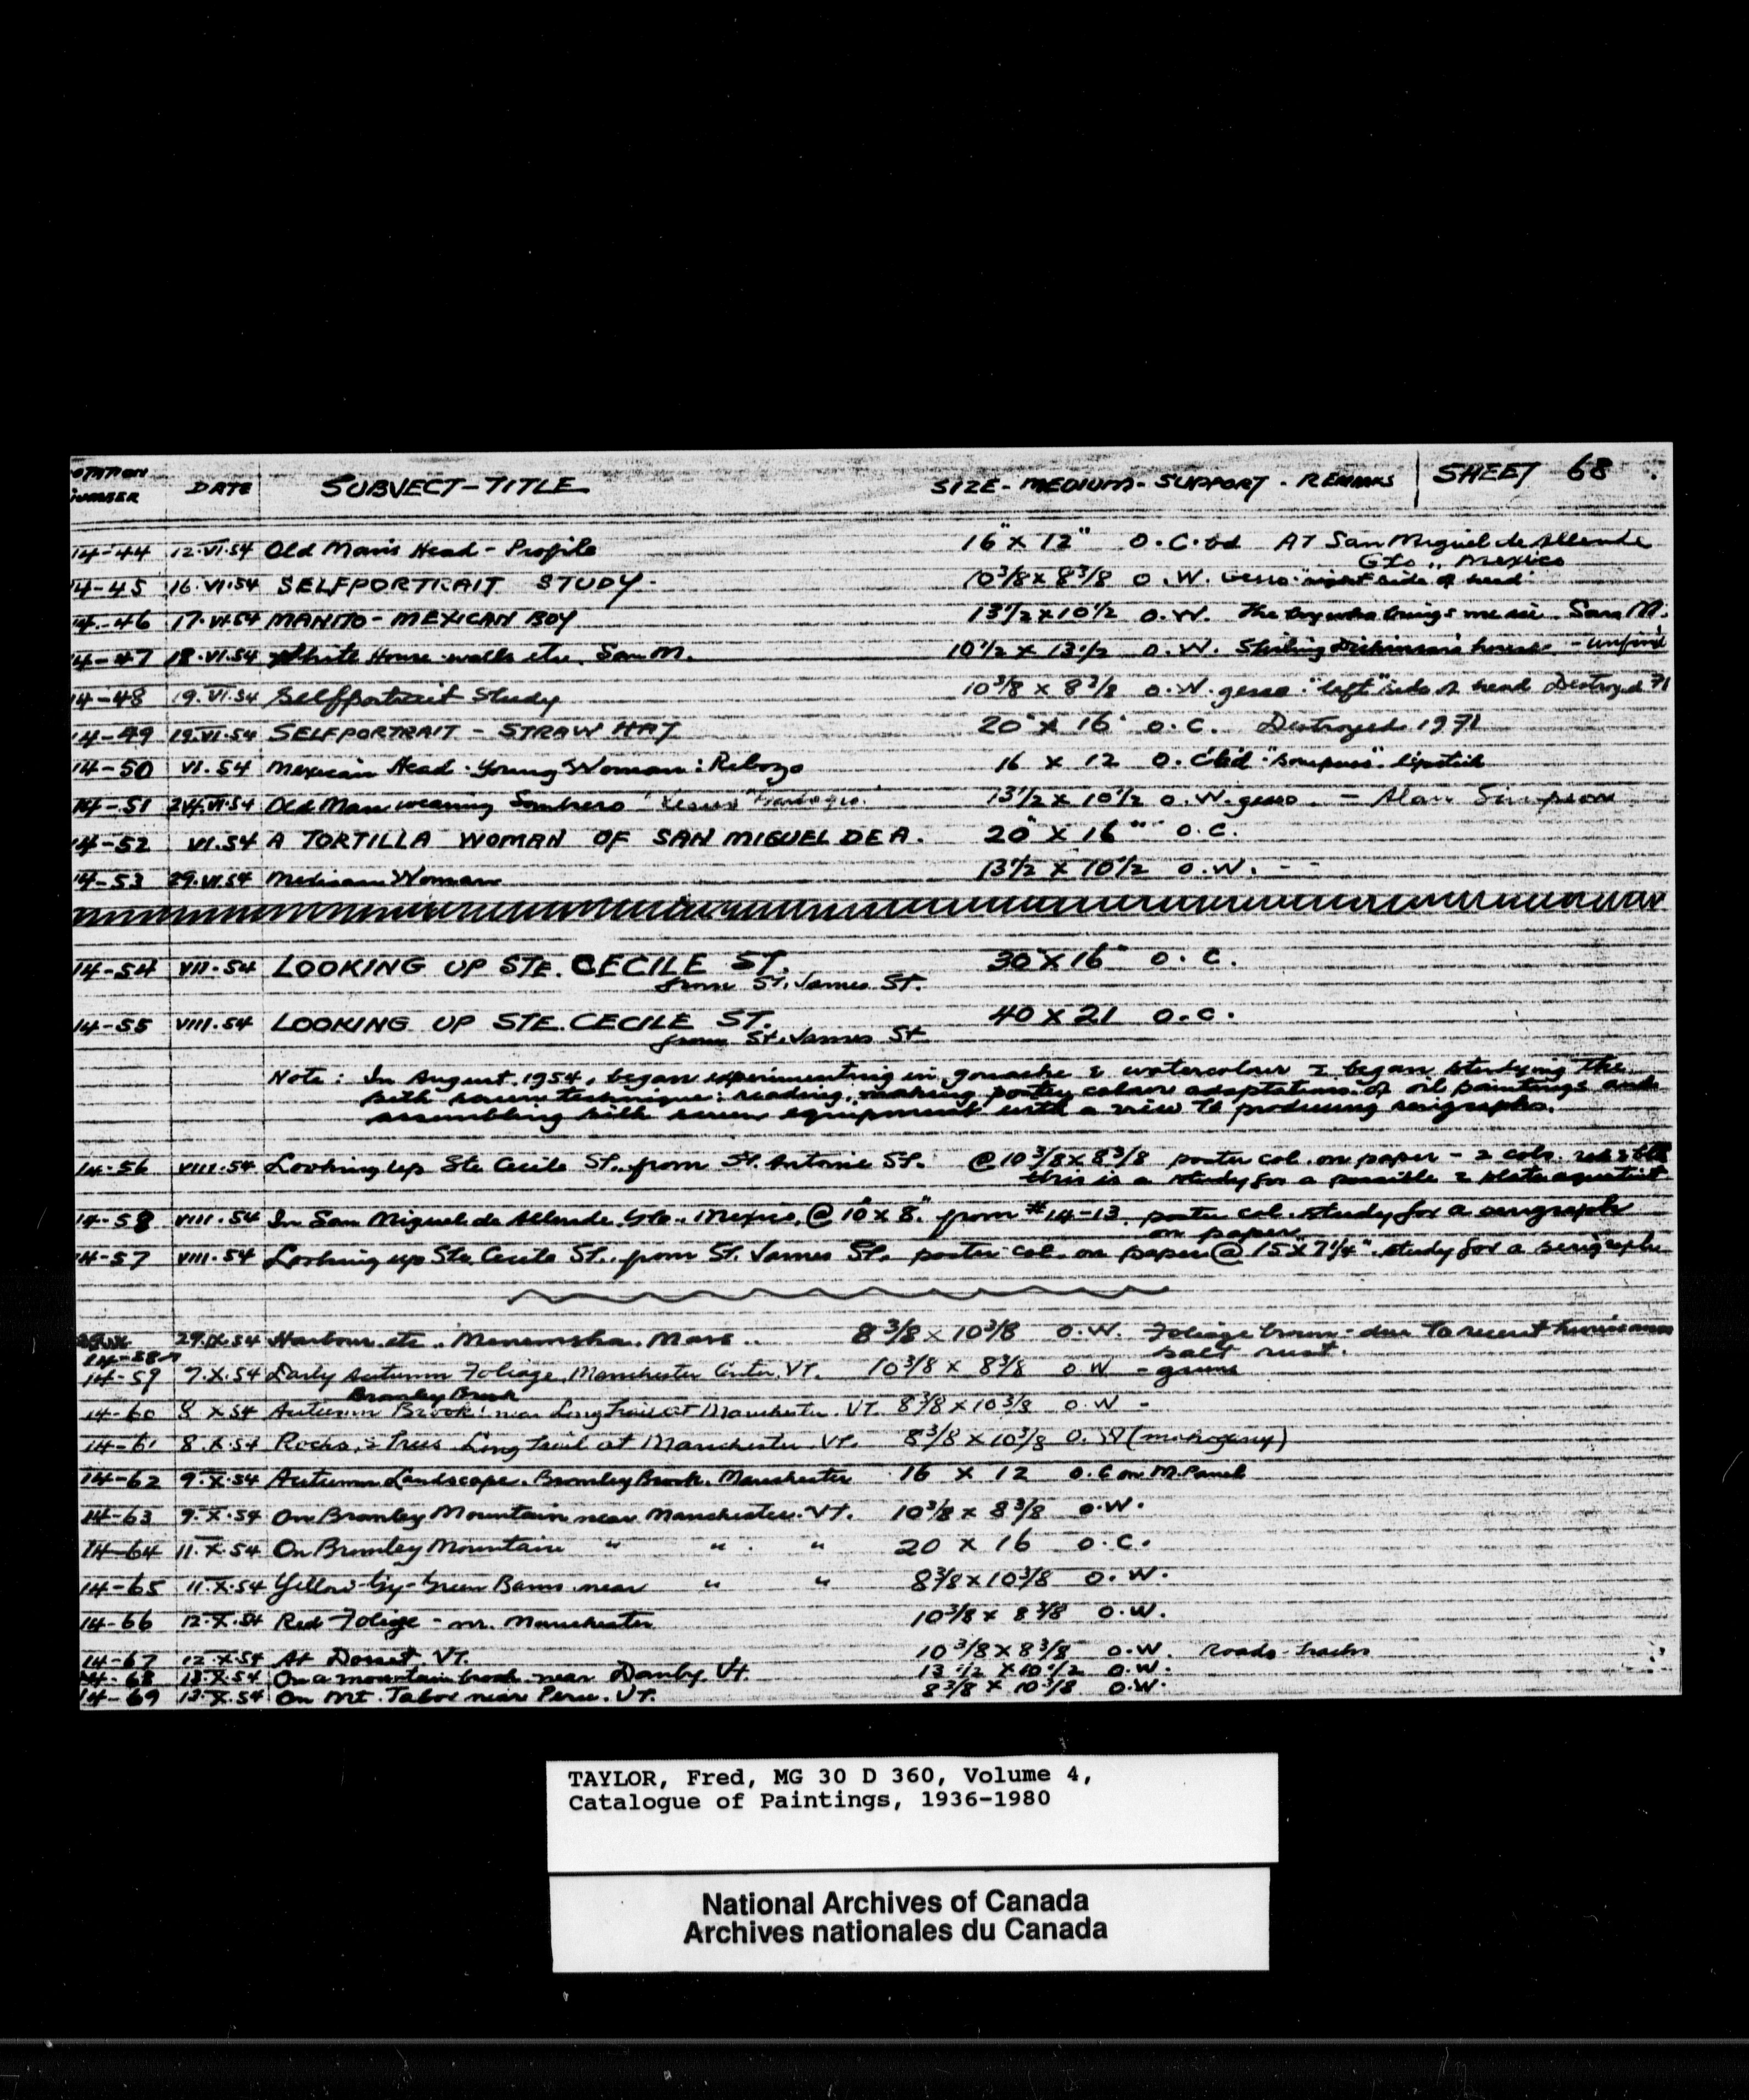 OTATION
NUMBER DATE SUBJECT-TITLE SIZE - MEDIUM - SUPPORT - REMARKS SHEET 68
14-44 12.VI.54 Old Man's Head - Profile 16" x 12" O.C.bd AT San Miguel de Allende
Gto., Mexico
14-45 16.VI.54 SELFPORTRAIT STUDY. 10 3/8 x 8 3/8 O.W. Gesso "right side of head"
14-46 17.VI.54 MANITO - MEXICAN BOY 13 1/2 x 10 1/2 O.W. The boy who brings me San M.
14-47 18.VI.54 White House walls etc. San M. 10 1/2 x 13 1/2 O.W. Stirling Dickinson's house - unfind
14-48 19.VI.54 Selfportrait Study 10 3/8 x 8 3/8 O.W. gesso. "left" side of head Destroyed 71
14-49 19.VI.54 SELFPORTRAIT - STRAW HAT 20" x 16" O.C. Destroyed 1971
14-50 VI.54 Mexican Head - Young Woman: Rebozo 16 x 12 O.C.bd lipstick
14-51 24.VI.54 Old Man wearing Sombrero 13 1/2 x 10 1/2 O.W. gesso. - Alan Simpson
14-52 VI.54 A TORTILLA WOMAN OF SAN MIGUEL DE A. 20" x 16" O.C.
14-53 29.VI.54 Mexican Woman 13 1/2 x 10 1/2 O.W. - -
14-54 VII.54 LOOKING UP STE. CECILE ST. 30" x 16" O.C.
from St. James St.
14-55 VIII.54 LOOKING UP STE. CECILE ST. 40 x 21 O.C.
from St. James St
Note: In August, 1954, began experimenting in gouache & watercolour & began studying the
silk screen technique: reading, making poster colour adaptations of oil paintings and
assembling silk screen equipment with a view to producing serigraphs.
14-56 VIII.54 Looking up Ste Cecile St. from St. Antoine St. @ 10 3/8 x 8 3/8 poster col. on paper - 2 cols.
this is a study for a possible 2 plate aquatint
14-58 VIII.54 In San Miguel de Allende, Gto., Mexico, @ 10" x 8" from #14-13. poster col. study for a serigraph
on paper
14-57 VIII.54 Looking up Ste. Cecile St. from St. James St. poster col. on paper @ 15" x 7 1/4". study for a serigraph
29.IX.54 Harbour etc. Menemsha. Mass.. 8 3/8 x 10 3/8 O.W. Foliage brown - due to recent hurricanes
14-58A salt rust.
14-59 7.X.54 Early Autumn Foliage, Manchester Center, VT. 10 3/8 x 8 3/8 O.W -
Bromley Brook
14-60 8.X.54 Autumn Brook: near Long Trail at Manchester. VT. 8 3/8 x 10 3/8 O.W -
14-61 8.X.54 Rocks, & trees Long Trail at Manchester VT. 8 3/8 x 10 3/8 O.W (mahogany)
14-62 9.X.54 Autumn Landscape. Bromley Brook. Manchester 16 x 12 O.C on M.Panel
14-63 9.X.54 On Bromley Mountain near Manchester. VT. 10 3/8 x 8 3/8 O.W.
14-64 11.X.54 On Bromley Mountain " " " 20 x 16 O.C.
14-65 11.X.54 Yellow-Gy-Green Barns near " " 8 3/8 x 10 3/8 O.W.
14-66 12.X.54 Red Foliage - nr. Manchester 10 3/8 x 8 3/8 O.W.
14-67 12.X.54 At Dorset. VT. 10 3/8 x 8 3/8 O.W. Roads-tracks
14-68 13.X.54 On a mountain brook near Danby Vt. 13 1/2 x 10 1/2 O.W.
14-69 13.X.54 On Mt. Tabor near Peru. VT. 8 3/8 x 10 3/8 O.W.
TAYLOR, Fred, MG 30 D 360, Volume 4,
Catalogue of Paintings, 1936-1980
National Archives of Canada
Archives nationales du Canada